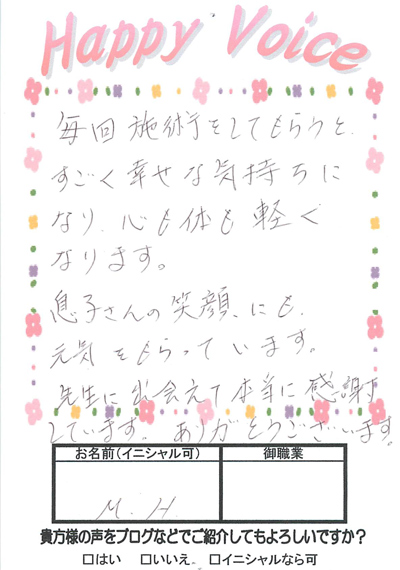 Happy Voice
毎回施術をしてもらうと、
すごく幸せな気持ちに
なり、心も体も軽く
なります。
息子さんの笑顔、にも、
元気をもらっています。
先生に出会えて本当に感謝
しています。ありがとうございます。
お名前(イニシャル可) 御職業
M. H.
貴方様の声をブログなどでご紹介してもよろしいですか?
□はい □いいえ □イニシャルなら可